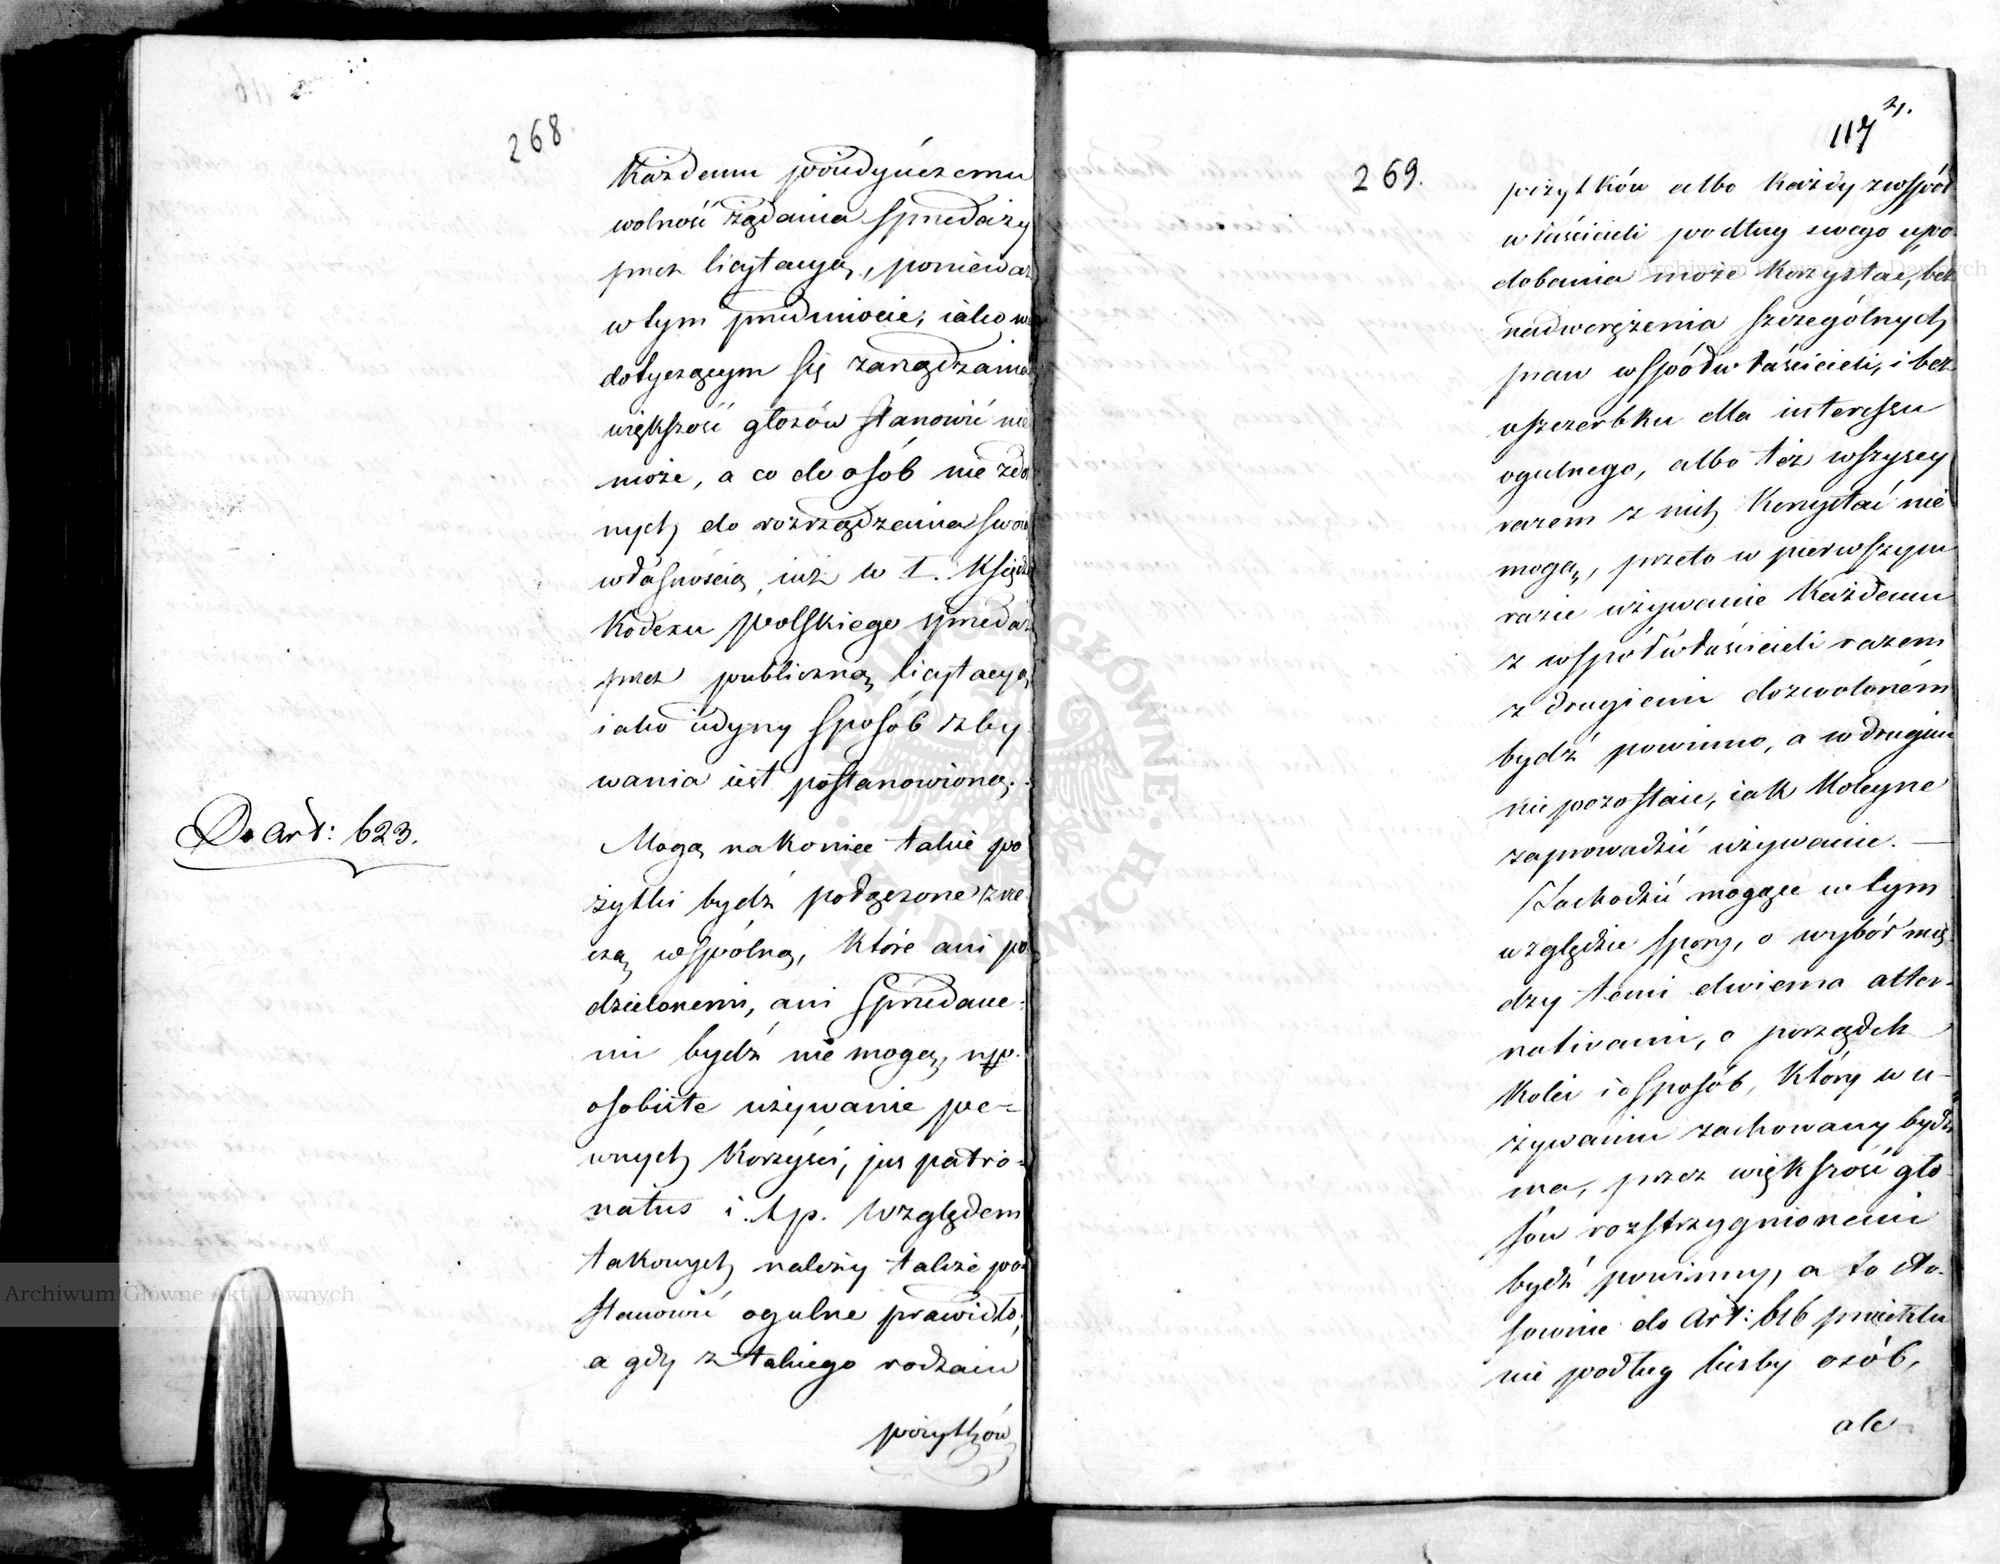 268.
Każdemu poiedyńczemu
wolność żądania sprzedaży
przez licytacyą, ponieważ
w tym przedmiocie, iako nie
dotyczącym się zarządzania
większość głosów stanowić nie
może, a co do osób nie zdol
nych do rozrządzania swoią
własnością, iuż w 1. Księdze
Kodexu polskiego sprzedaż
przez publiczną licytacyą,
iako iedyny sposób zby
wania iest postanowioną.
Do Art: 623.
Mogą nakoniec takie po
żytki bydź połączone z rze
czą wspólną, które ani po
dzielonemi, ani sprzedane-
mi bydź nie mogą, np.
osobiste używanie pe=
wnych korzyści, jus patro-
natus i. t.p. Względem
takowych należy także po
stanowić ogulne prawidło;
a gdy z takiego rodzaiu
pożytków
117
269.
pożytków albo każdy z współ
właścicieli podług swego upo
dobania może korzystać, bez
nadwerężenia szczególnych
praw współwłaścicieli, i bez
uszczerbku dla interessu
ogulnego, albo też wszyscy
razem z nich korzystać nie
mogą, przeto w pierwszym
razie używanie każdemu
z współwłaścicieli razem
z drugiemi dozwolonem
bydź powinno, a w drugim
nie pozostaie, iak koleyne
zaprowadzić używanie. —
Zachodzić mogące w tym
względzie spory, o wybór mię
dzy temi dwiema alter-
natiwami, o porządek
kolei i o sposób, który w u-
żywaniu zachowany bydź
ma, przez większość gło
sów rozstrzygnionemi
bydź powinny, a to sto-
sownie do Art: 616 projektu
nie podług liczby osób,
ale
Archiwum Główne Akt Dawnych
Archiwum Główne Akt Dawnych